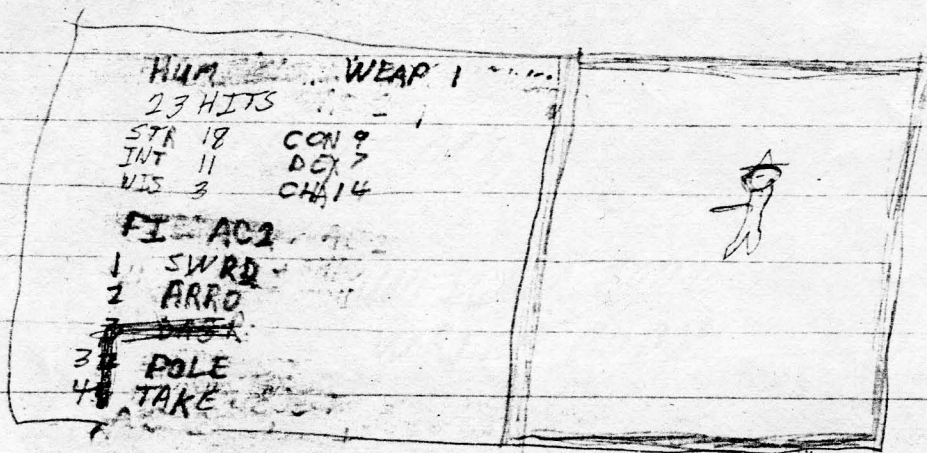 HUM WEAP 1
23 HITS
STR 18 CON 9
INT 11 DEX 7
WIS 3 CHA 14
FI AC2
1 SWRD
2 ARRO
3 POLE
4 TAKE